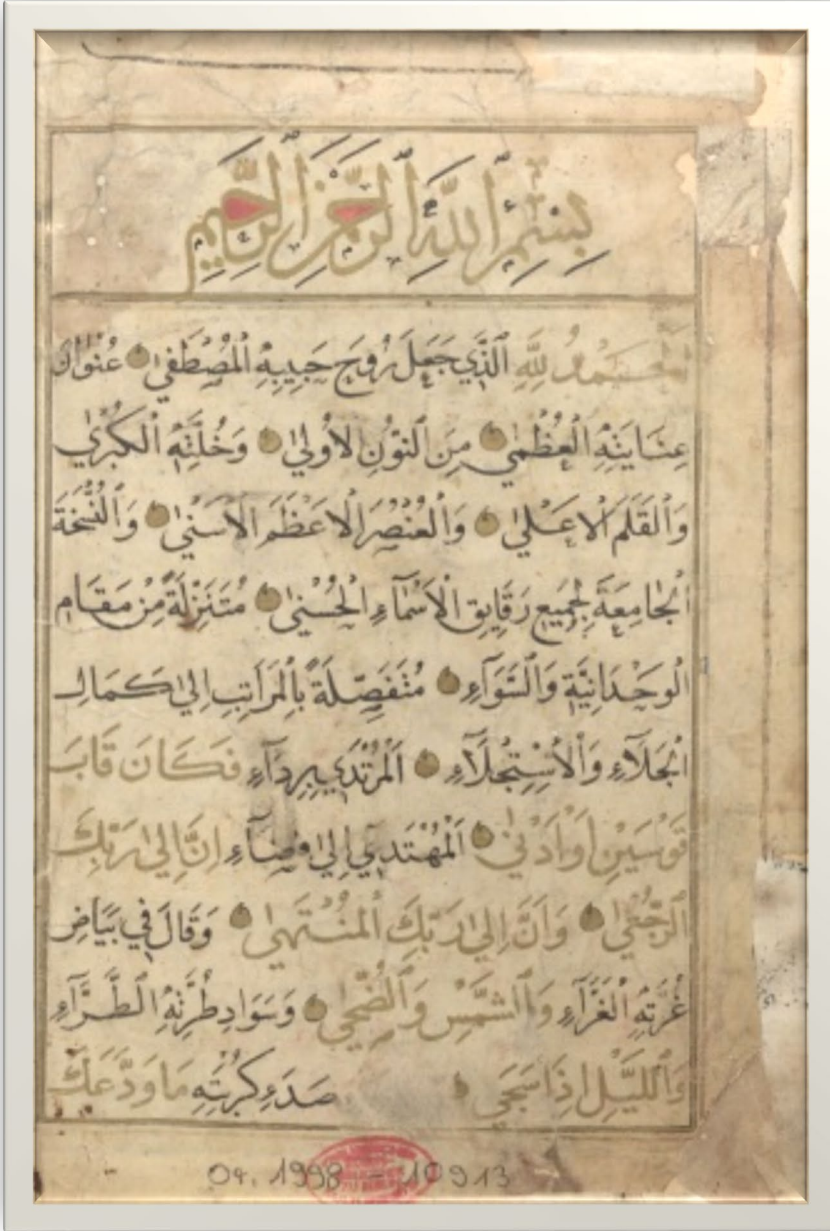 بِسْمِ اللَّهِ الرَّحْمَنِ الرَّحِيمِ
اَلْحَمْدُ لِلَّهِ الَّذِي جَعَلَ رُوحَ حَبِيبِهِ الْمُصْطَفٰى عُنْوَانَ
عِنَايَتِهِ الْعُظْمٰى مِنَ النُّونِ الْاُولٰى وَخُلَّتِهِ الْكُبْرٰي
وَالْقَلَمَ الْاَعْلٰى وَالْعُنْصُرَ الْاَعْظَمَ الْاَسْنٰى وَالنُّسْخَةَ
الْجَامِعَةَ لِجَمِيعِ رَقَايِقِ الْاَسْمَآءِ الْحُسْنٰى مُتَنَزِّلَةً مِنْ مَقَامِ
الْوَحْدَانِيَّةِ وَالسَّوَآءِ مُتَفَصِّلَةً بِالْمَرَاتِبِ اِلٰى كَمَالِ
الْجَلَآءِ وَالْاِسْتِجْلَآءِ الْمُرْتَدِي بِرِدَآءِ فَكَانَ قَابَ
قَوْسَيْنِ اَوْ اَدْنٰى اَلْمُهْتَدِي اِلٰى اِنَّ اِلٰى رَبِّكَ
الرُّجْعٰى وَاَنَّ اِلٰى رَبِّكَ الْمُنْتَهٰى وَقَالَ فِي بَيَاضِ
غُرَّتِهِ الْغَرَّآءِ وَالشَّمْسِ وَالضُّحٰى وَسَوَادِ طُرَّتِهِ الطَّرَّآءِ
وَاللَّيْلِ اِذَا سَجٰى مَا وَدَّعَكَ
04.1998 - 10913